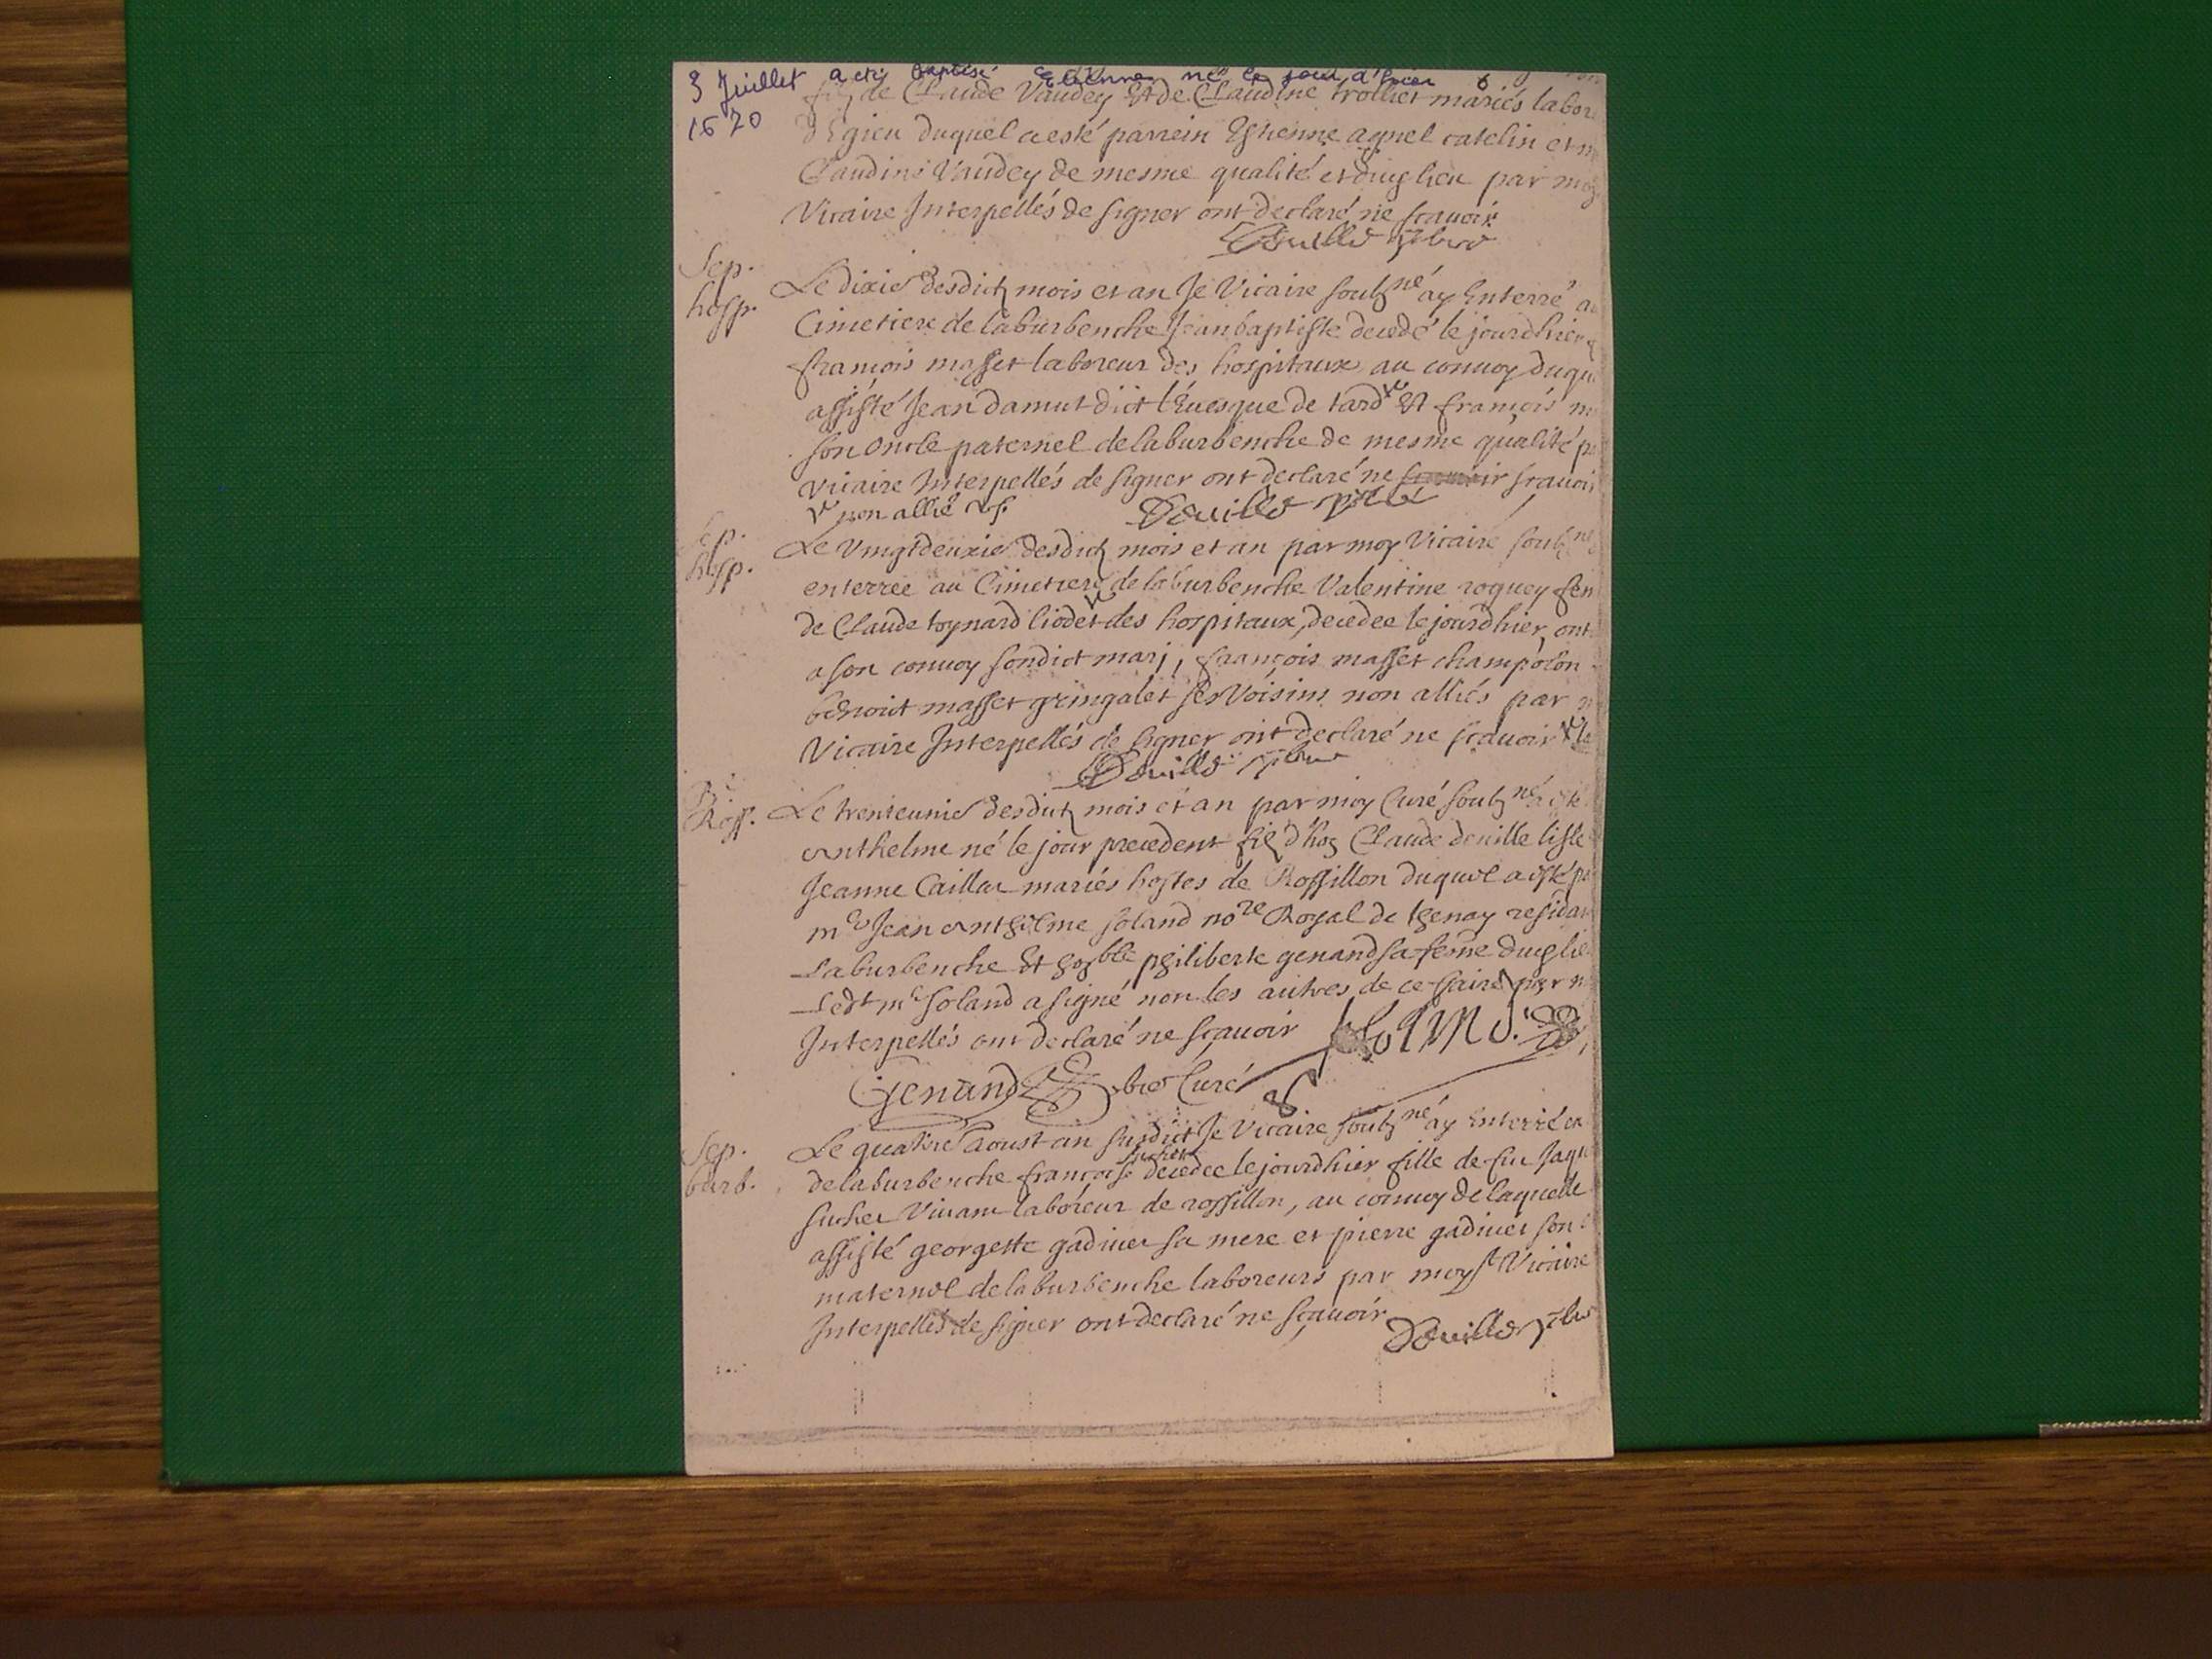 3 Juillet a été baptisé Etienne né le jour d'hier
1670
filz de Claude Vaudey Et de Claudine trolliet mariés labor
d'Egieu duquel a esté parrein Estienne aynel catelin et m
Claudine Vaudey de mesme qualité et dud lieu par moy
Vicaire Interpellés de signer ont declaré ne scavoir
Deville pbre
Sep.
hosp.
Le dixie desdictz mois et an Je Vicaire soubzné ay Enterré au
Cimetiere de laburbenche Jeanbaptiste decedé le jourdhier
françois masset laboreur des hospitaux au convoy duqu
assisté Jean damut dict l'Evesque de tard Et françois m
son oncle paternel delaburbenche de mesme qualité p
vicaire Interpellés de signer ont declaré ne scavoir
non allié
Deville pbre
Sep.
hosp.
Le Vingtdeuxie desdictz mois et an par moy Vicaire soubzné
enterrée au Cimetiere de laburbenche Valentine roguey fem
de Claude toynard liodet des hospitaux, decedee le jourdhier, ont
a son convoy sondict mari, françois masset champolon
benoit masset gringalet ses Voisins non alliés par m
Vicaire Interpellés de signer ont declaré ne scavoir
Deville pbre
Ross.
Le trenteunie desdictz mois et an par moy Curé soubzné a esté
Anthelme né le jour precedent filz d'hon Claude deville lisle
Jeanne Caillat mariés hostes de Rossillon duquel a esté pa
me Jean anthelme soland nore Royal de thenay residan
Laburbenche Et honble philiberte genand sa feme dud lie
Ledt me soland a signé non les autres de ce faire par m
Interpellés ont declaré ne scavoir Soland
Genand pbre Curé
Sep.
burb.
Le quatrie Aoust an susdict Je Vicaire soubzné ay Enterré au
suchet
delaburbenche françoise decedee le jourdhier fille de feu Jaqu
suchet Vivant laboreur de rossillon, au convoy de laquelle
assisté georgette gadivet sa mere et pierre gadivet son
maternel delaburbenche laboreurs par moy st Vicaire
Interpellés de signer ont declaré ne scavoir
Deville pbre